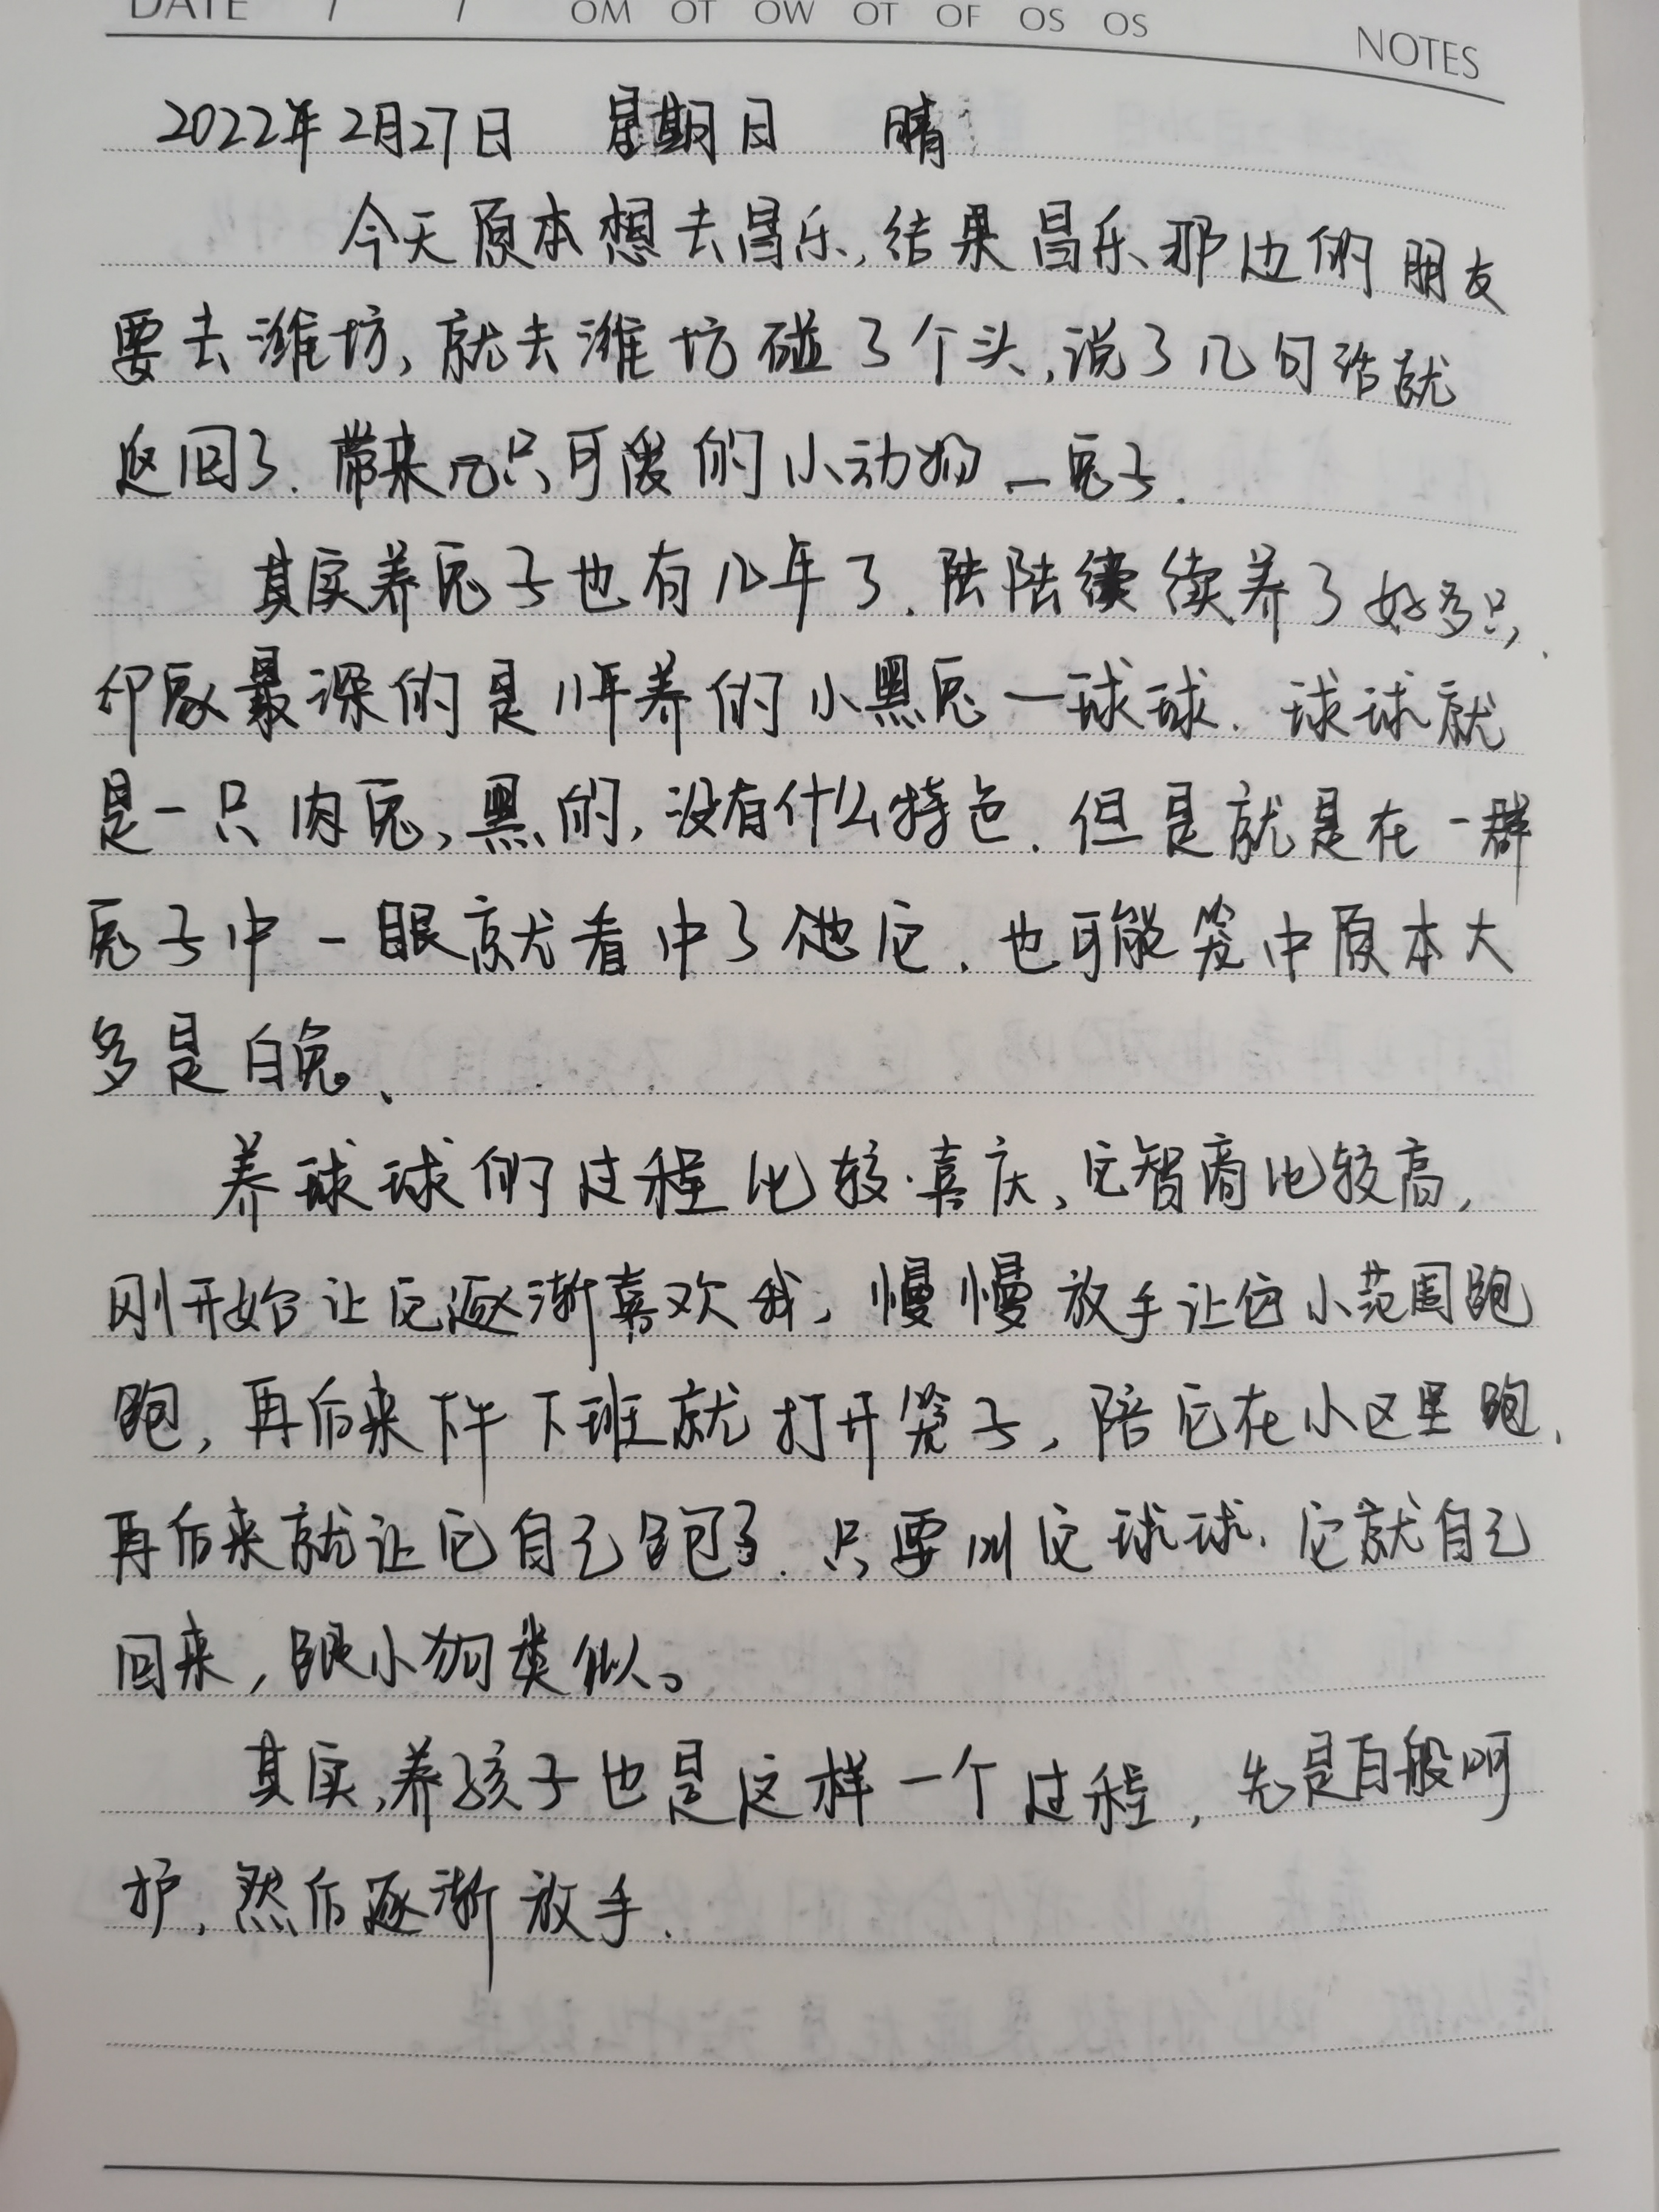 DATE / / OM OT OW OT OF OS OS NOTES
2022年2月27日 星期日 晴
今天原本想去昌乐,结果昌乐那边的朋友
要去潍坊,就去潍坊碰了个头,说了几句话就
返回了.带来几只可爱的小动物—兔子.
其实养兔子也有几年了.陆陆续续养了好多只,
印象最深的是 养的小黑兔—球球.球球就
是一只肉兔,黑的,没有什么特色.但是就是在一群
兔子中一眼就看中了它.也可能笼中原本大
多是白兔、
养球球的过程比较喜庆,它智商比较高,
刚开始让它逐渐喜欢我,慢慢放手让它小范围跑
跑,再后来下午下班就打开笼子,陪它在小区里跑.
再后来就让它自己跑了.只要叫它球球.它就自己
回来,跟小狗类似。
其实,养孩子也是这样一个过程,先是百般呵
护,然后逐渐放手.